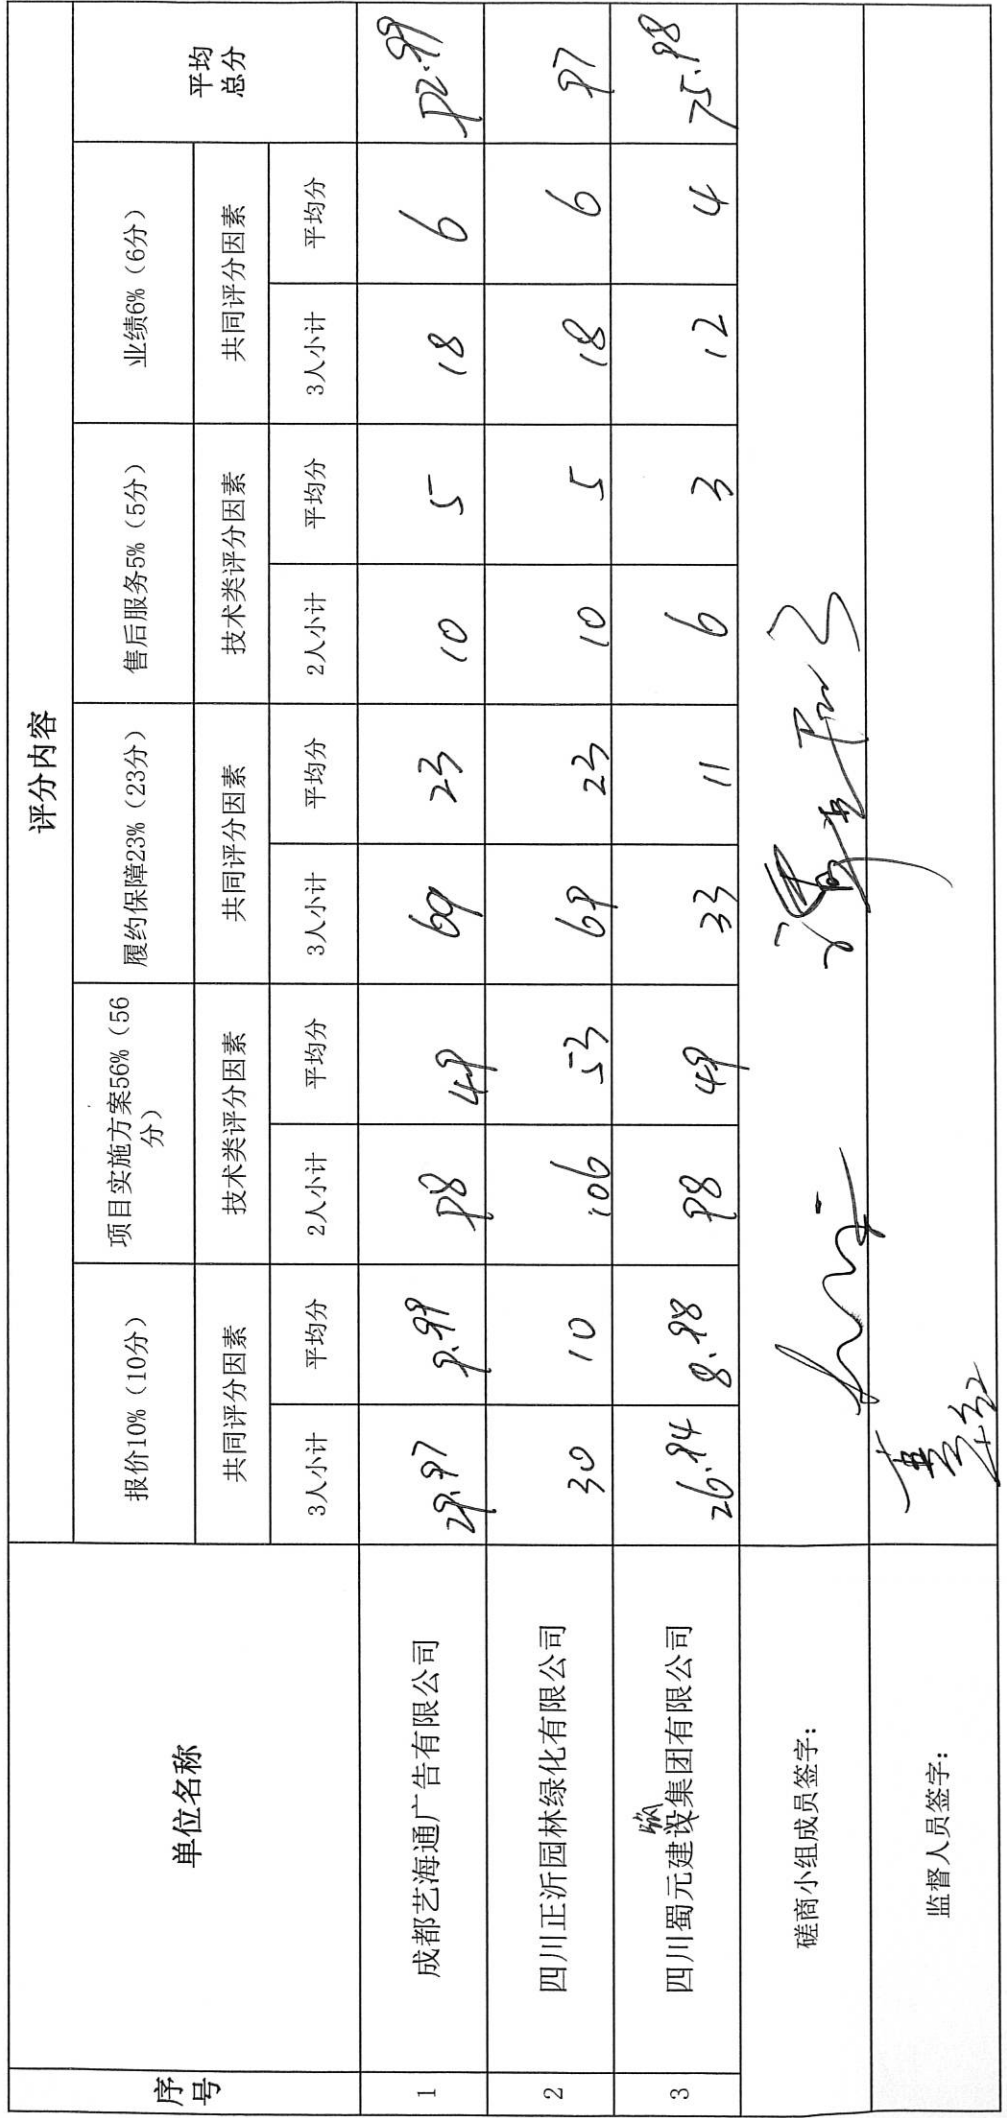 序号
单位名称
评分内容
报价10%（10分）
项目实施方案56%（56分）
履约保障23%（23分）
售后服务5%（5分）
业绩6%（6分）
平均总分
共同评分因素
技术类评分因素
共同评分因素
技术类评分因素
共同评分因素
3人小计 平均分 2人小计 平均分 3人小计 平均分 2人小计 平均分 3人小计 平均分
1 成都艺海通广告有限公司 29.97 9.99 98 49 69 23 10 5 18 6 92.99
2 四川正沂园林绿化有限公司 30 10 106 53 69 23 10 5 18 6 97
3 四川蜀元建设集团有限公司 26.94 8.98 98 49 33 11 6 3 12 4 75.98
磋商小组成员签字：
监督人员签字：